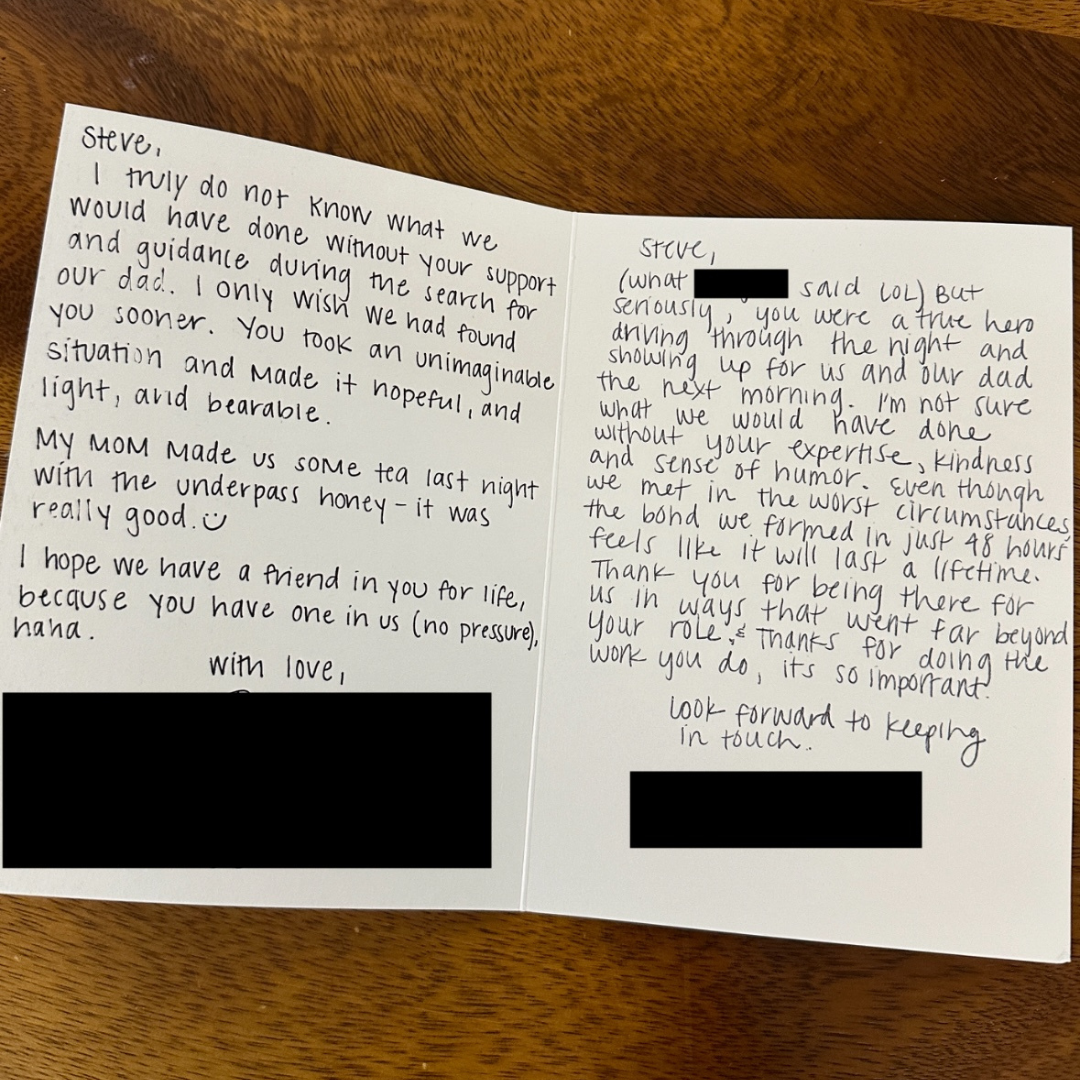 Steve,
I truly do not know what we
would have done without your support
and guidance during the search for
our dad. I only wish we had found
you sooner. You took an unimaginable
situation and made it hopeful, and
light, and bearable.
My mom made us some tea last night
with the underpass honey - it was
really good. :)
I hope we have a friend in you for life,
because you have one in us (no pressure),
haha.
with love,
Steve,
(what said LOL) But
seriously, you were a true hero
driving through the night and
showing up for us and our dad
the next morning. I'm not sure
what we would have done
without your expertise, kindness
and sense of humor. Even though
we met in the worst circumstances,
the bond we formed in just 48 hours
feels like it will last a lifetime.
Thank you for being there for
us in ways that went far beyond
your role. & Thanks for doing the
work you do, its so important.
Look forward to keeping
in touch.